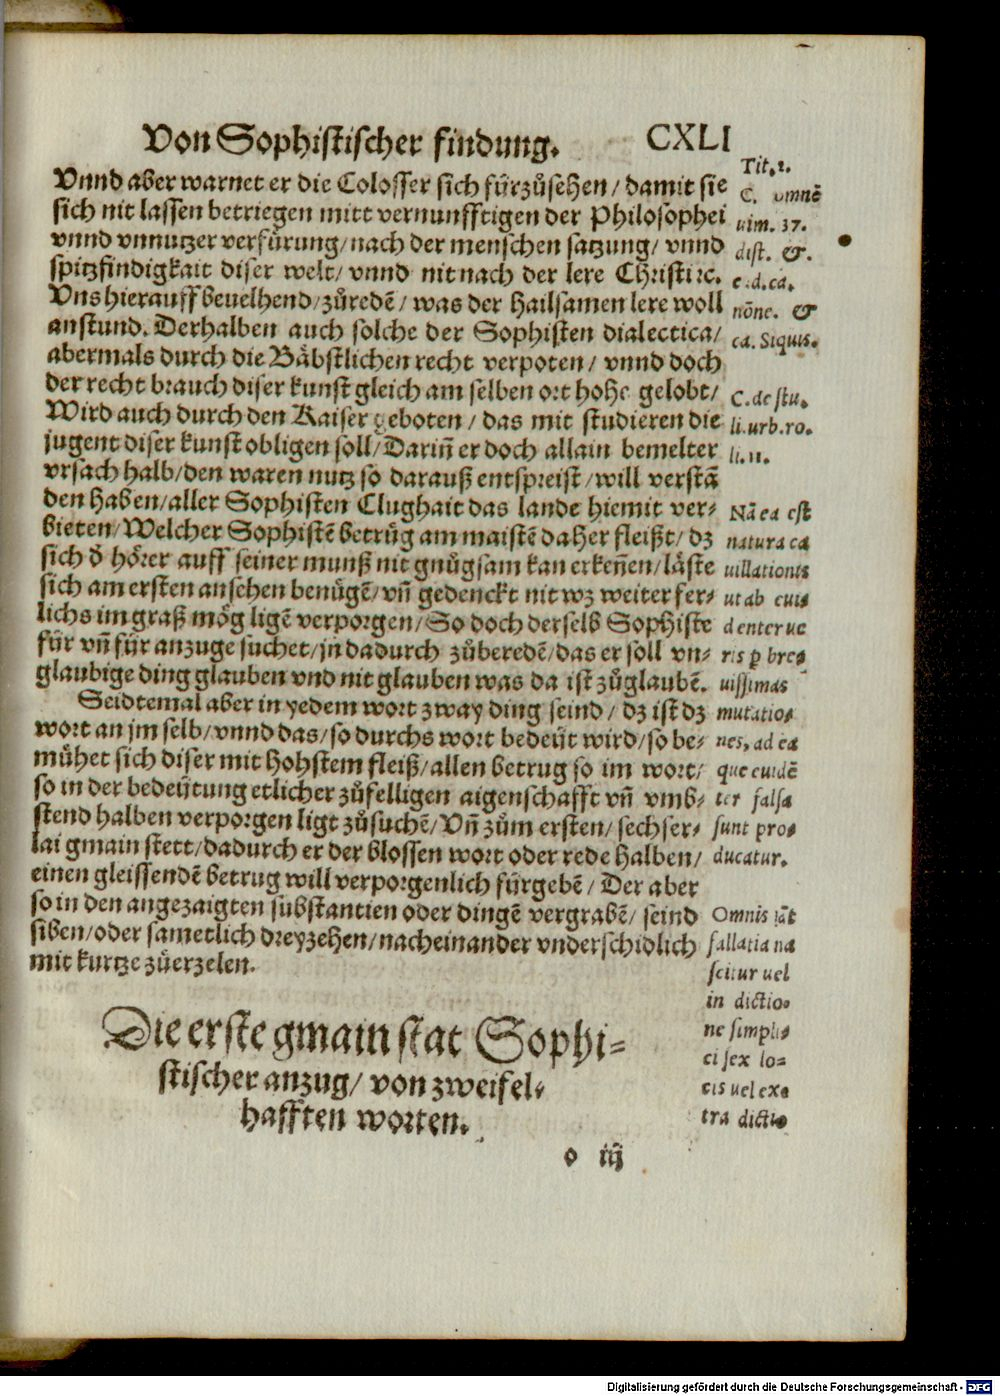 Von Sophistischer findung. CXLI
Vnnd aber warnet er die Colosser sich fürzůsehen / damit sie
sich nit lassen betriegen mitt vernunfftigen der Philosophei
vnnd vnnutzer verfürung/nach der menschen satzung/ vnnd
spitzfindigkait diser welt/ vnnd nit nach der lere Christi ꝛc.
Vns hierauff beuelhend/zůredē/ was der hailsamen lere woll
anstund. Derhalben auch solche der Sophisten dialectica/
abermals durch die Bäbstlichen recht verpoten / vnnd doch
der recht brauch diser kunst gleich am selben ort hohe gelobt/
Wird auch durch den Kaiser geboten / das mit studieren die
jugent diser kunst obligen soll/Dariñ er doch allain bemelter
vrsach halb/den waren nutz so darauß entspreist/will verstā
den haben/aller Sophisten Clughait das lande hiemit ver⸗
bieten/Welcher Sophistē betrüg am maistē daher fleißt/ dz
sich d̄ hörer auff seiner munß nit gnůgsam kan erkeñen/läste
sich am ersten ansehen benügē/vñ gedenckt nit wz weiter fer⸗
lichs im graß mög ligē verporgen/So doch derselb Sophiste
für vñ für anzuge suchet/jn dadurch zůberedē/das er soll vn⸗
glaubige ding glauben vnd nit glauben was da ist zůglaubē.
Seidtemal aber in yedem wort zway ding seind / dz ist dz
wort an jm selb/vnnd das/so durchs wort bedeüt wird/so be⸗
mühet sich diser mit hohstem fleiß/allen betrug so im wort/
so in der bedeütung etlicher zůfelligen aigenschafft vñ vmb⸗
stend halben verporgen ligt zůsuchē/Vñ zům ersten/sechser⸗
lai gmain stett/dadurch er der blossen wort oder rede halben/
einen gleissendē betrug will verporgenlich fürgebē/ Der aber
so in den angezaigten substantien oder dingē vergrabē/ seind
siben/oder sametlich dreyzehen/nacheinander vnderschidlich
mit kurtze zůerzelen.
Die erste gmain stat Sophi⸗
stischer anzug/ von zweifel⸗
hafften worten.
o iij
Tit.1.
C. omnē
uim. 37.
dist. &.
e.d.ca.
nōne. &
ca. Siquis.
C.de stu.
li.urb.ro.
li.11.
Nā ea est
natura ca
uillationis
ut ab eui⸗
denter ue
ris ꝑ bre⸗
uissimas
mutatio⸗
nes, ad ea
que euidē
ter falsa
sunt pro⸗
ducatur.
Omnis
fallatia na
scitur uel
in dictio⸗
ne simpli⸗
ci sex lo⸗
cis uel ex⸗
tra dictio
Digitalisierung gefördert durch die Deutsche Forschungsgemeinschaft - DFG